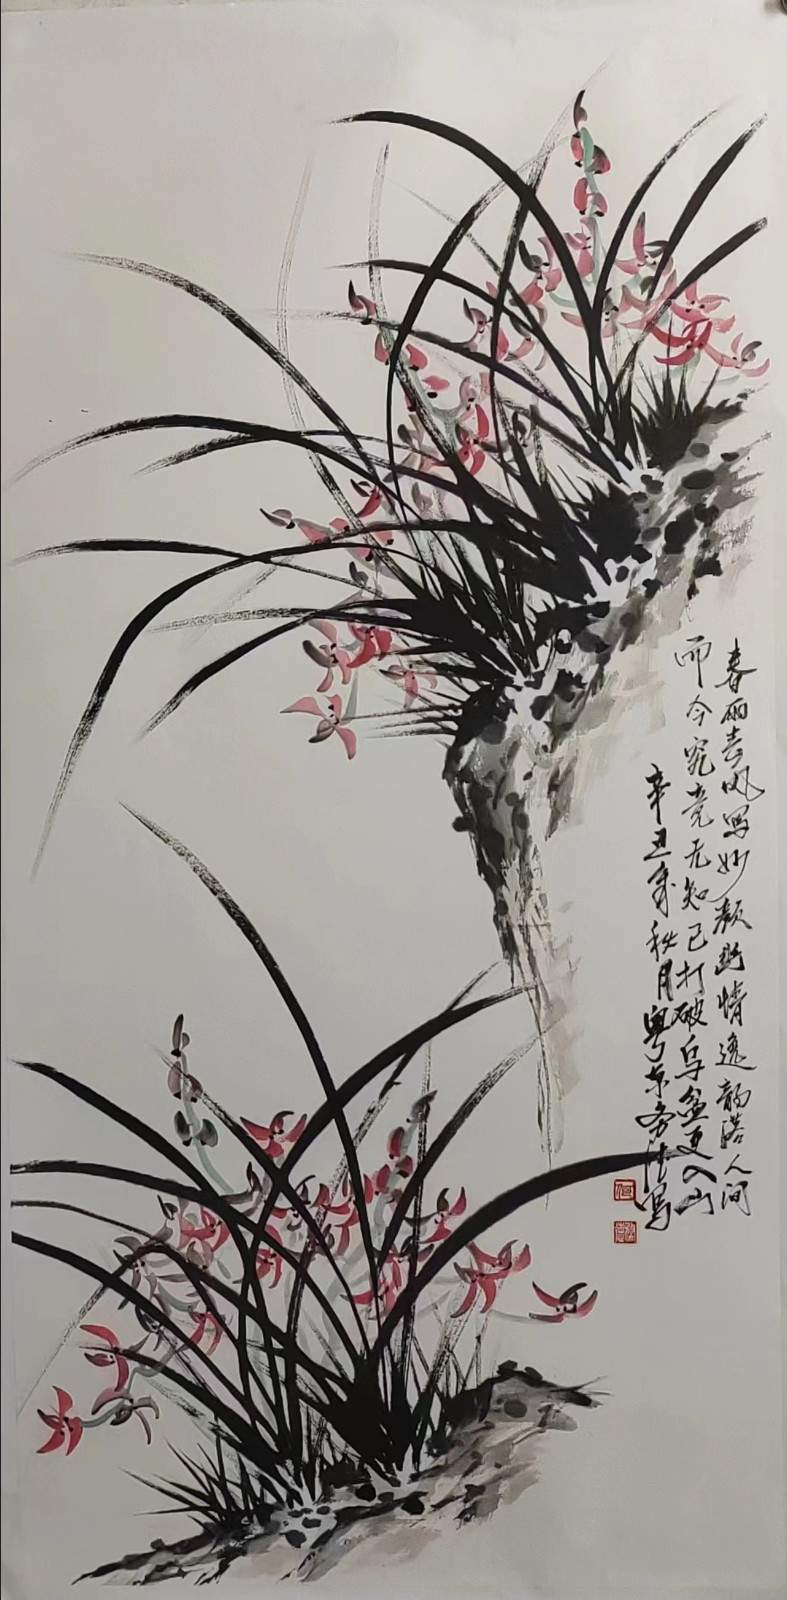 春雨春风写妙颜幽情逸韵落人间
而今究竟无知己打破乌盆更入山
辛丑年秋月粤东写